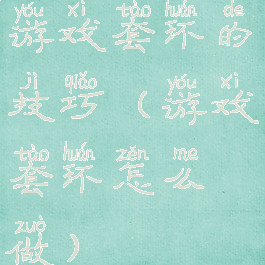 yóu xì tào huán de
游戏套环的
jì qiǎo yóu xì
技巧（游戏
tào huán zěn me
套环怎么
zuò
做）